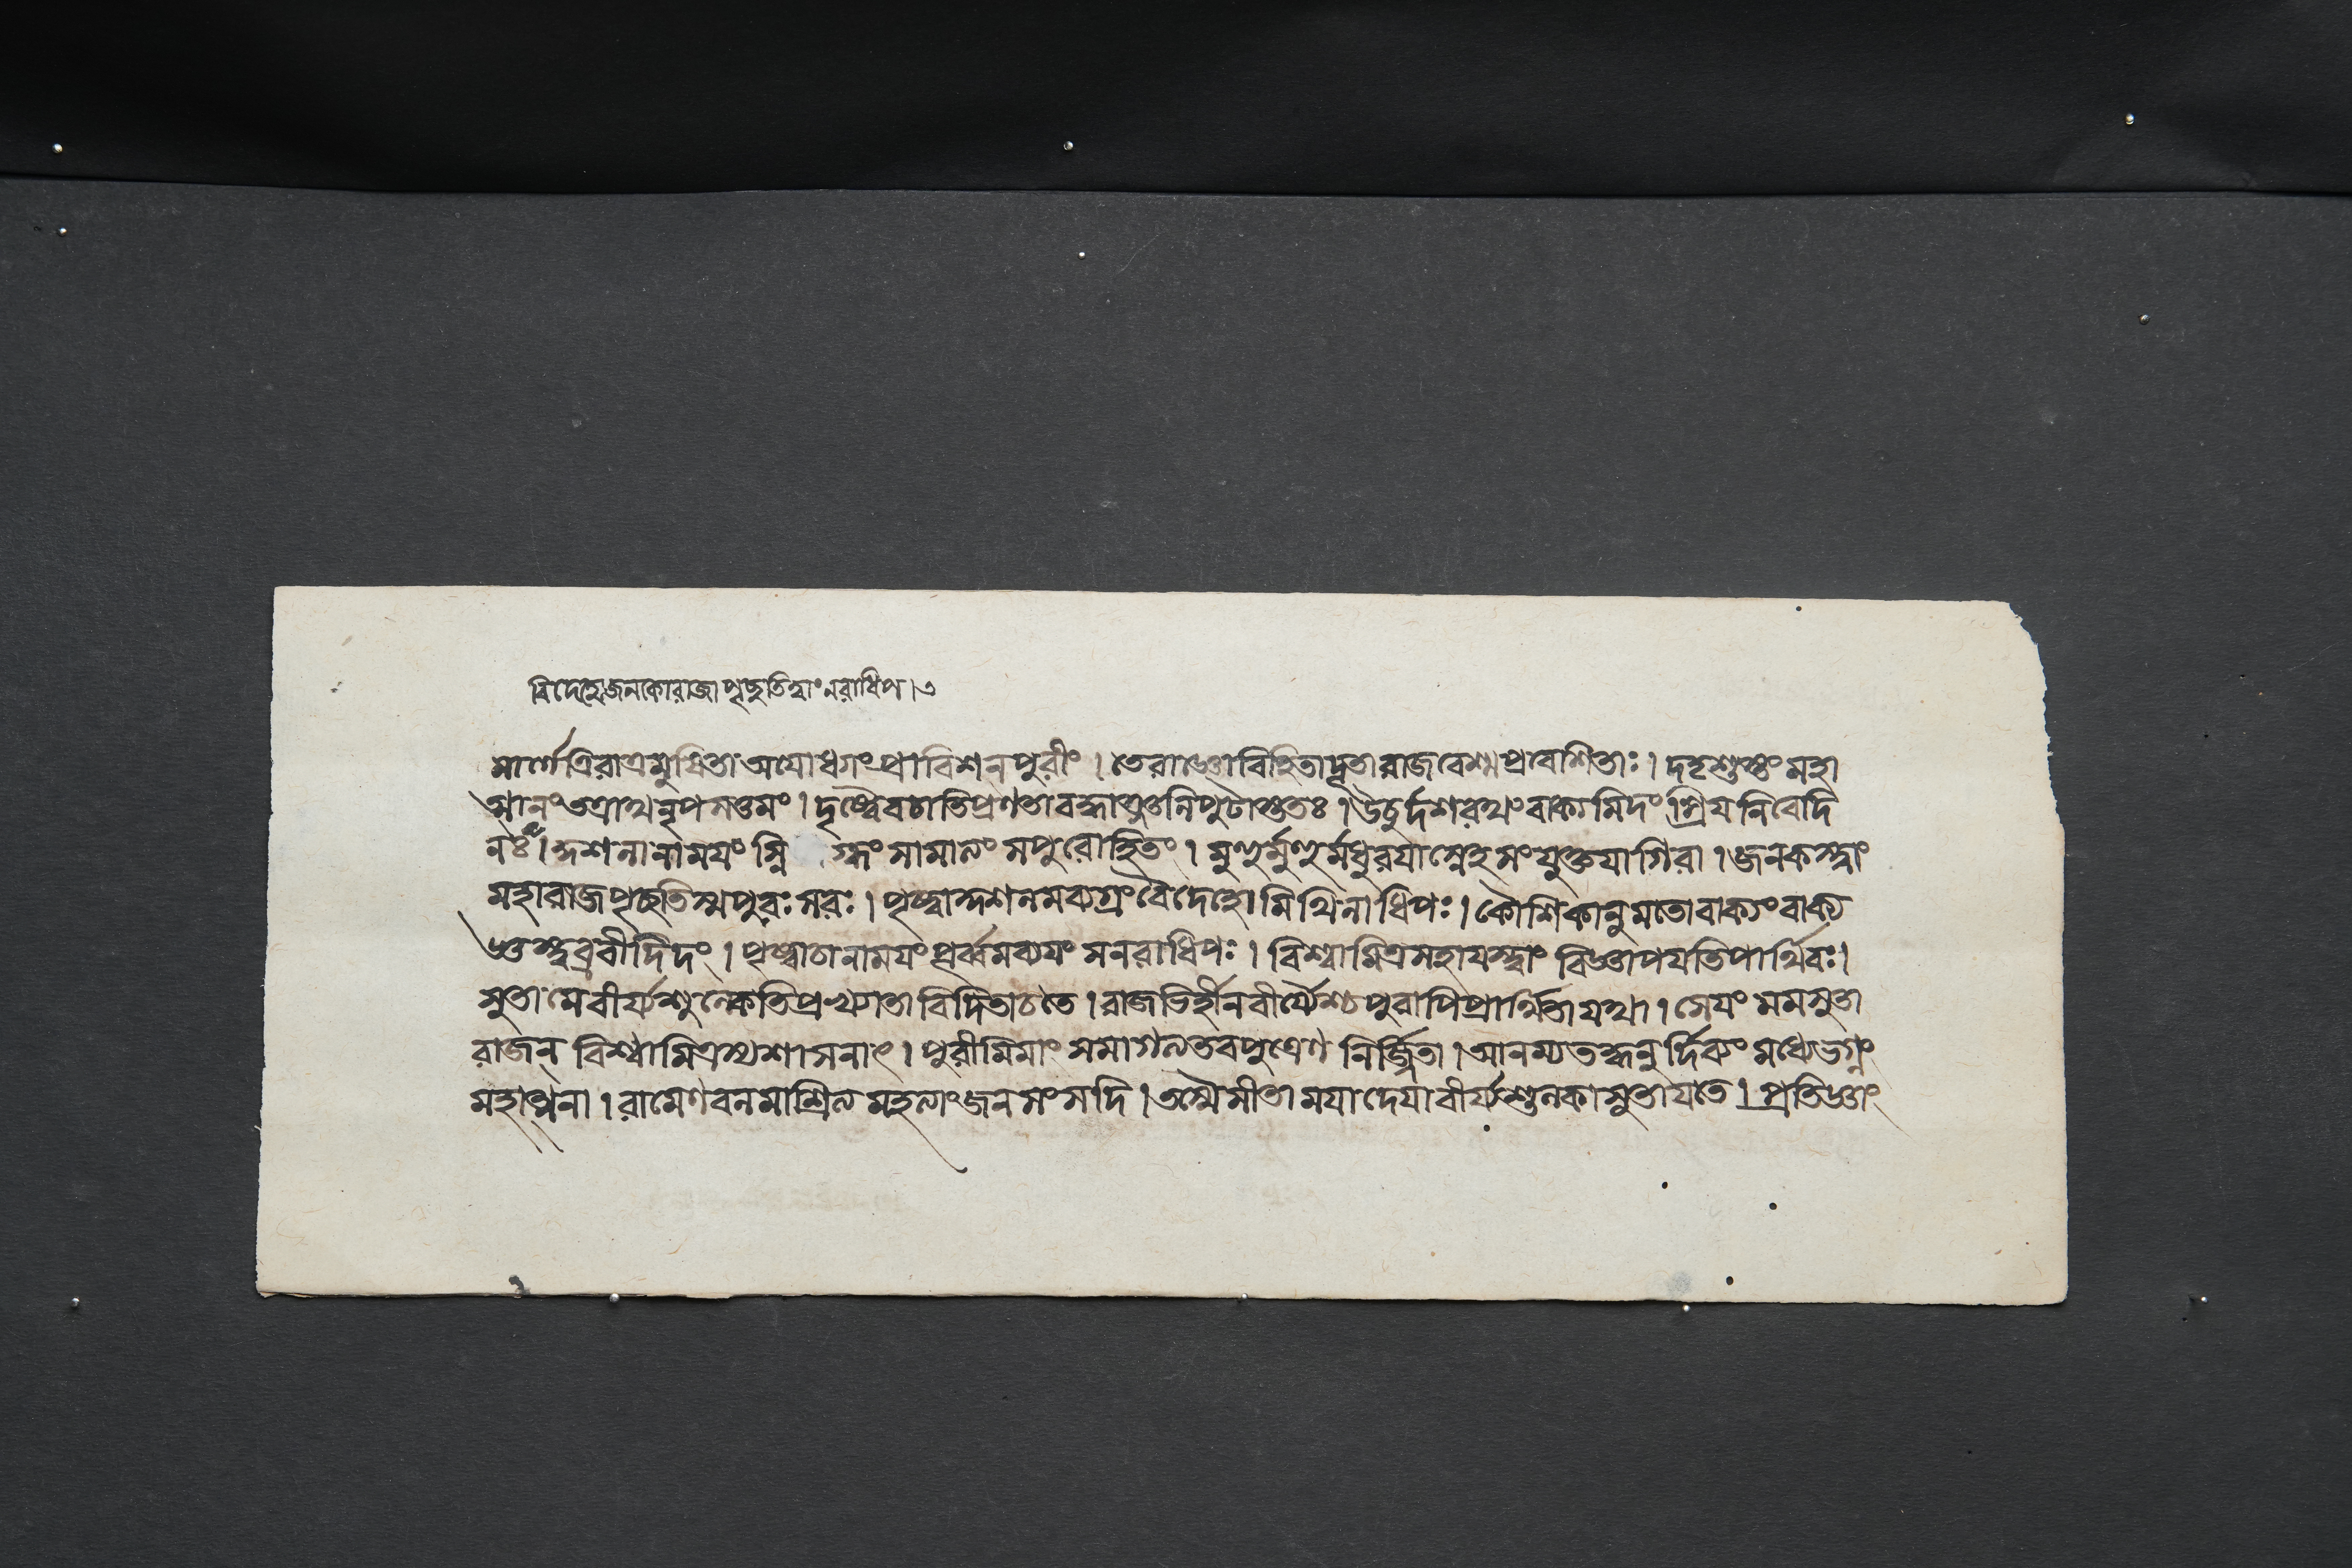 বিদেহো জনকোরাজা পৃচ্ছতিত্বাং নরাধিপ। ৩
মার্গেত্রিরাত্রমুষিতা অযোধ্যাং প্রাবিশন্পুরীং । তেরাজ্ঞোবিহিতাদূতারাজবেশ্মপ্রবেশিতাঃ । দদৃশুস্তং মহা
ত্মানং তত্রাথনৃপসত্তমং । দৃষ্ট্বৈবচাতিপ্রণতাবদ্ধাঞ্জলিপুটাস্ততঃ । ঊচুর্দশরথং বাক্যমিদং প্রিযনিবেদি
নঃ । কুশলানাময়ং স্নিগ্ধং সামাত্যং সপুরোহিতং । মুহুর্মুহুর্মধুরযাস্নেহসংযুক্তযাগিরা । জনকস্ত্বাং
মহারাজপৃচ্ছতিস্মপুরঃসরঃ । পৃষ্ট্বাকুশলমব্যগ্রং বৈদেহো মিথিলাধিপঃ । কৌশিকানুমতোবাক্যং বাক্য
জ্ঞস্ত্বব্রবীদিদং । পৃষ্ট্বাচানাময়ং পূর্ব্বমব্যযং সনরাধিপঃ । বিশ্বামিত্রসহাযস্ত্বাং বিজ্ঞাপযতিপার্থিবঃ ।
সুতা মেবীর্য্যশুল্কেতিপ্রখ্যাতাবিদিতাচতে । রাজভির্হীনবীর্য্যৈশ্চপুরাপিপ্রার্থিতাযথা । সেযং মমসুতা
রাজন্ বিশ্বামিত্রস্যশাসনাৎ । পুরীমিমাং সমাগত্যতবপুত্রেণ নির্জ্জিতা । আনম্যতদ্ধনুর্দিব্যং মধ্যেভগ্নং
মহাত্মনা । রামেণবলমাশ্রিত্যমহত্যাং জনসংসদি । তস্মৈসীতা মযাদেযাবীর্য্যশুল্কাসুতাযতে । প্রতিজ্ঞাং